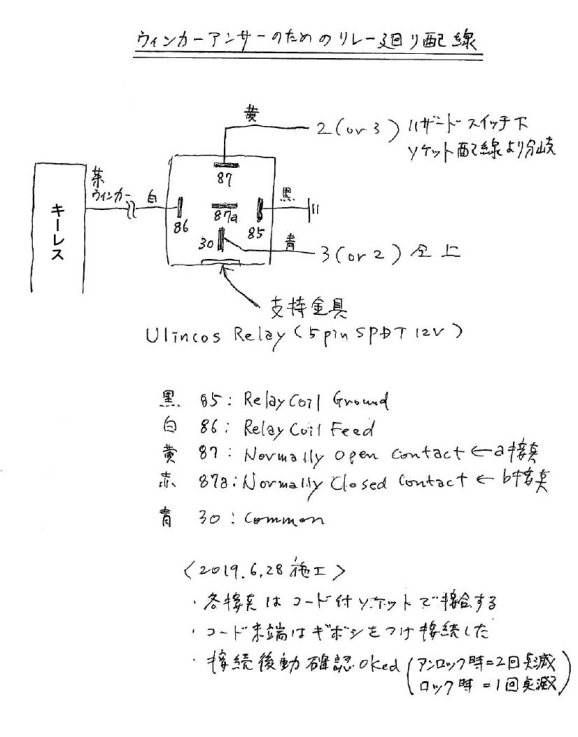 ウィンカーアンサーのためのリレー廻り配線
黄
2 (or 3) ハザードスイッチ下
ソケット配線より分岐
茶
ウィンカー
白
87
黒
キーレス
86
87a
85
30
青
3 (or 2) 仝上
支持金具
Ulincos Relay (5pin SPDT 12V)
黒 85: Relay Coil Ground
白 86: Relay Coil Feed
黄 87: Normally Open Contact ← a接点
赤 87a: Normally Closed Contact ← b接点
青 30: Common
<2019.6.28 施工>
・各接点はコード付ソケットで接合する
・コード末端はギボシをつけ接続した
・接続後動確認OKed (アンロック時=2回点滅
ロック時 =1回点滅)